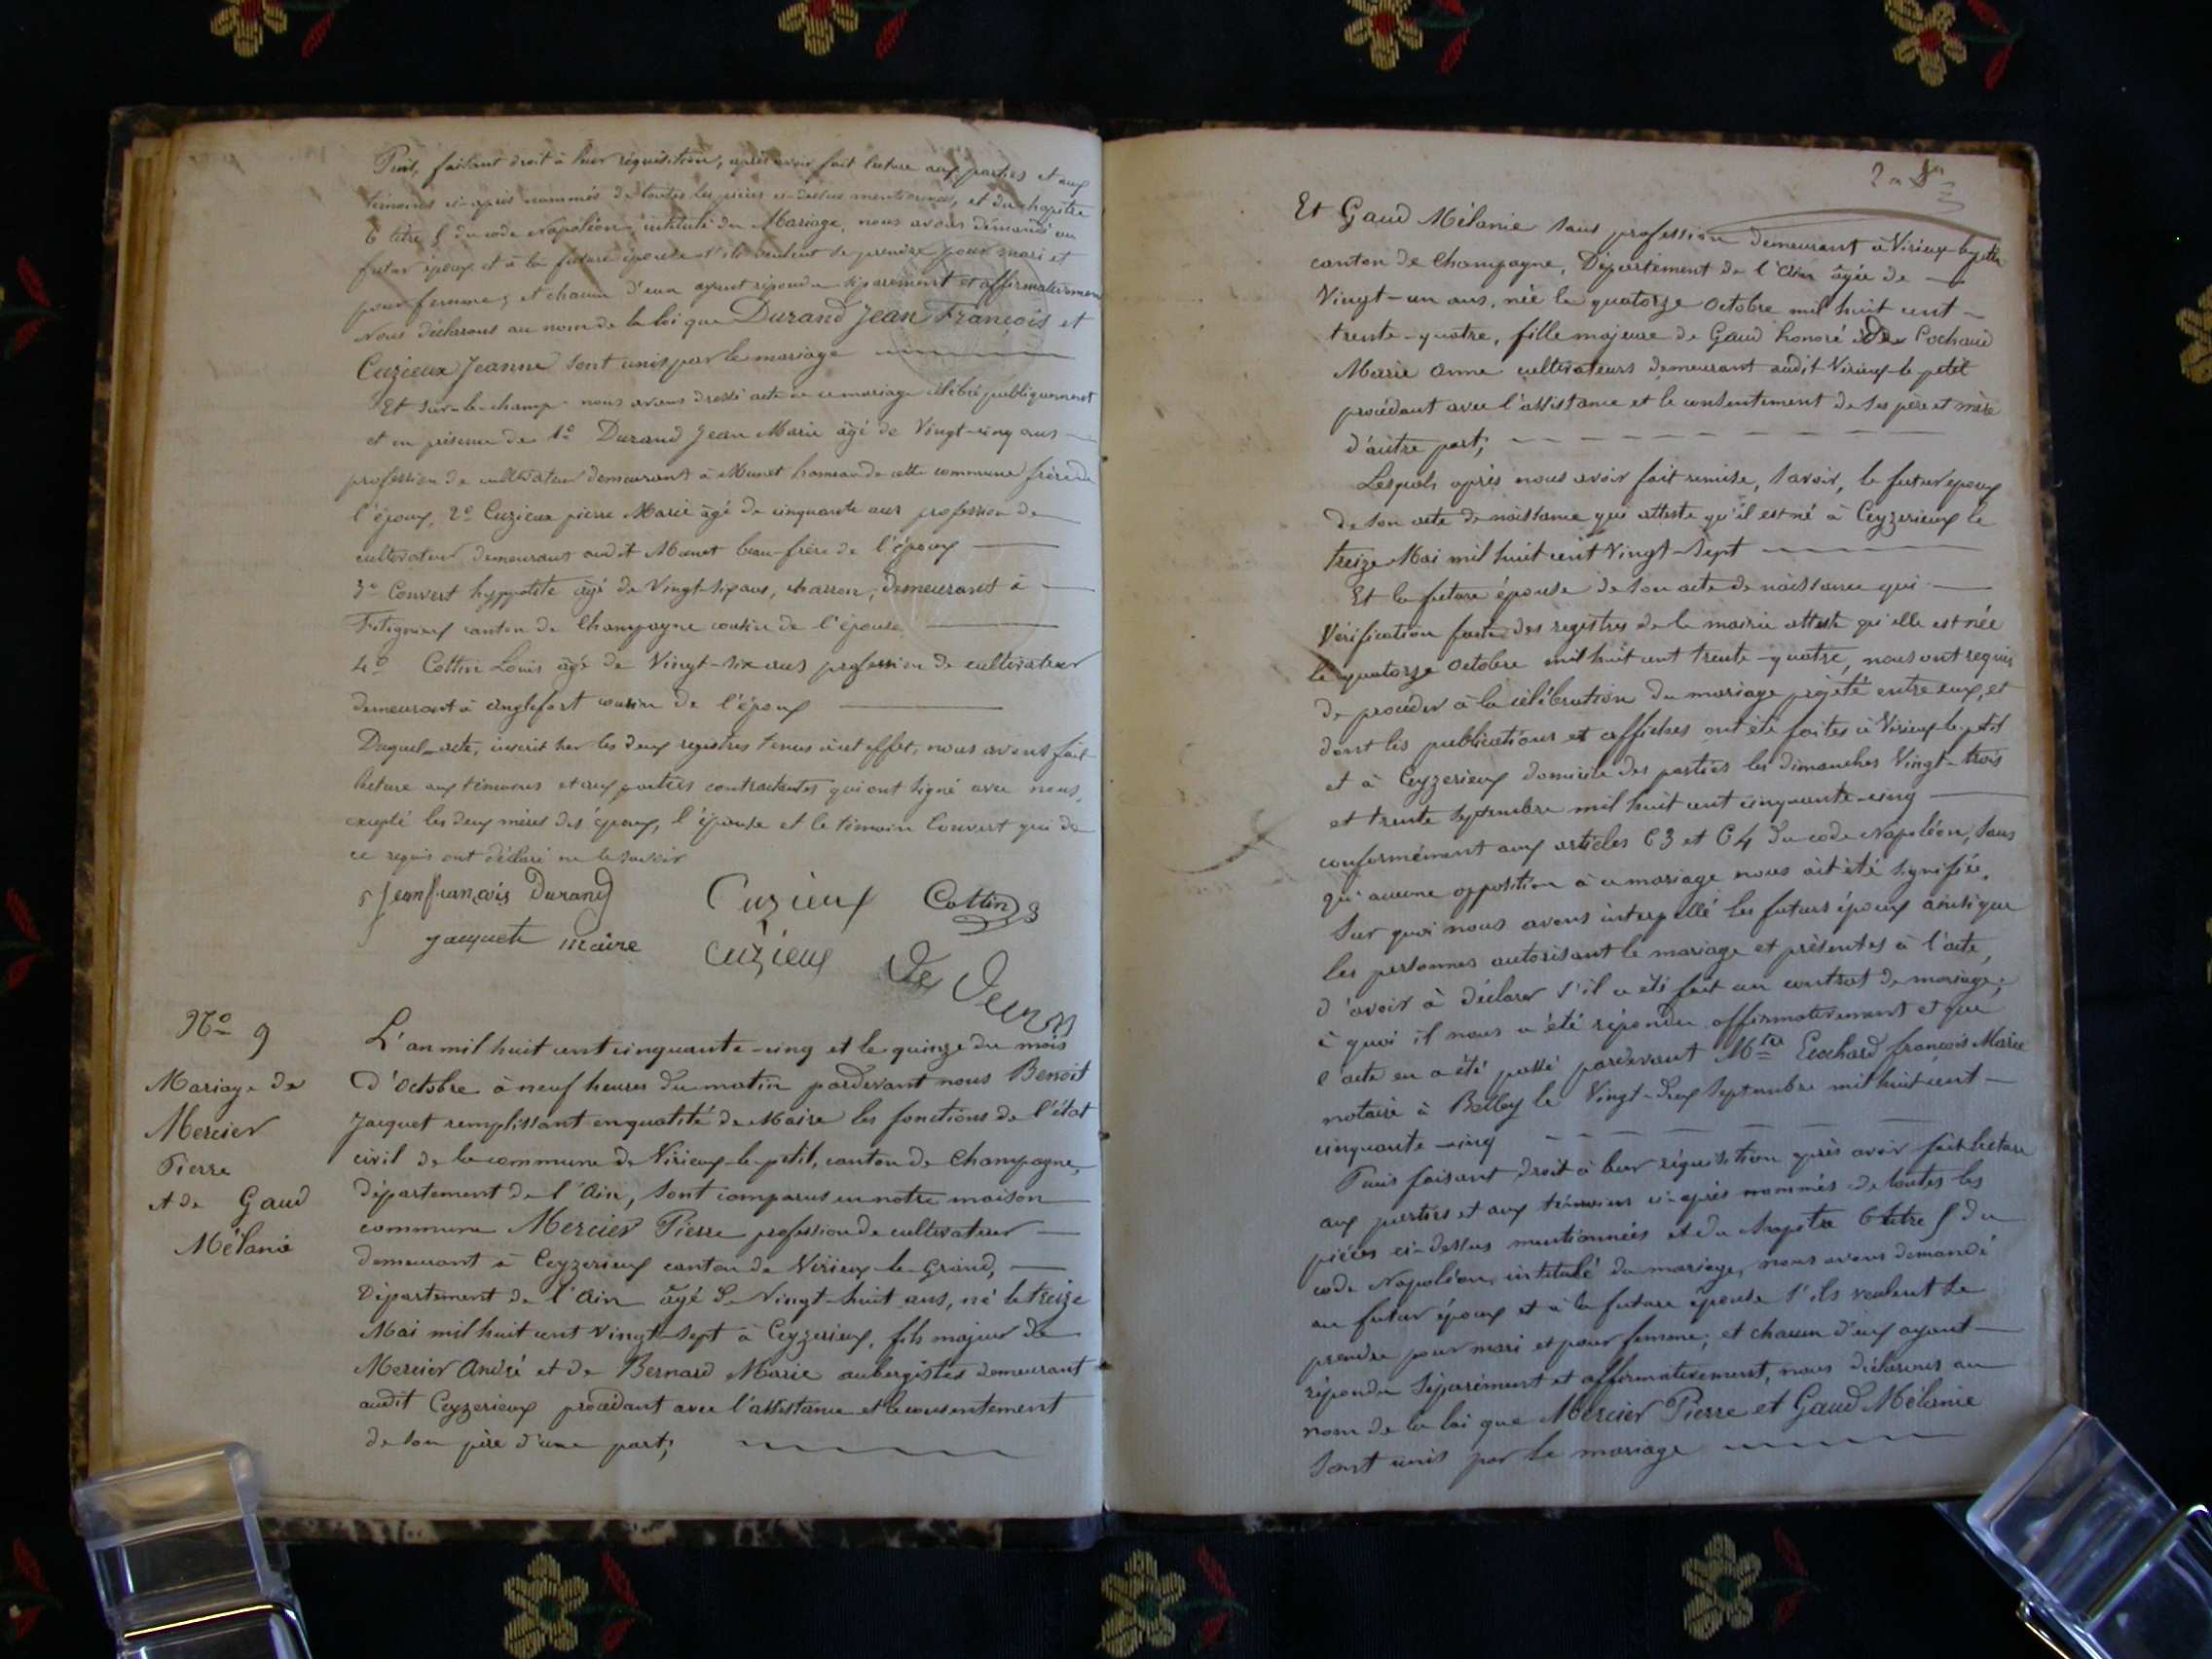 Puis, faisant droit à leur réquisition, après avoir fait lecture aux parties et aux
témoins ci-après nommés de toutes les pièces ci-dessus mentionnées, et du chapitre
6 titre 5 du code Napoléon, intitulé du Mariage, nous avons demandé au
futur époux et à la future épouse s'ils veulent se prendre pour mari et
pour femme, et chacun d'eux ayant répondu séparément et affirmativement
Nous déclarons au nom de la loi que Durand Jean François et
Cuzieux Jeanne sont unis par le mariage
Et sur-le-champ nous avons dressé acte de ce mariage célébré publiquement
et en présence de 1° Durand Jean Marie âgé de Vingt-cinq ans
profession de cultivateur demeurant à Munet hameau de cette commune frère de
l'époux, 2° Cuzieux pierre Marie âgé de cinquante ans profession de
cultivateur demeurant audit Munet beau-frère de l'époux
3° Convert hyppolite âgé de Vingt-six ans, charron, demeurant à
canton de Champagne cousin de l'épouse
4° Cottin Louis âgé de Vingt-six ans profession de cultivateur
demeurant à anglefort cousin de l'époux
Duquel acte, inscrit sur les deux registres tenus à cet effet, nous avons fait
lecture aux témoins et aux parties contractantes qui ont signé avec nous,
excepté les deux mères des époux, l'épouse et le témoin Convert qui de
ce requis ont déclaré ne le savoir
Jean françois Durand Cuzieux Cottin
Jacquet maire Cuzieux
N° 9
Mariage de
Mercier
Pierre
et de Gaud
Mélanie
L'an mil huit cent cinquante-cinq et le quinze du mois
d'Octobre à neuf heures du matin pardevant nous Benoit
Jacquet remplissant en qualité de Maire les fonctions de l'état
civil de la commune de Virieux-le-petit, canton de Champagne,
département de l'Ain, sont comparus en notre maison
commune Mercier Pierre profession de cultivateur
demeurant à Ceyzerieux canton de Virieux-le-Grand,
Département de l'Ain âgé de Vingt-huit ans, né le treize
Mai mil huit cent vingt-sept à Ceyzerieux, fils majeur de
Mercier André et de Bernard Marie aubergistes demeurant
audit Ceyzerieux procédant avec l'assistance et le consentement
de son père d'une part;
Et Gaud Mélanie sans profession demeurant à Virieux-le-petit
canton de Champagne, Département de l'Ain âgée de
Vingt-un ans, née le quatorze Octobre mil huit cent
trente-quatre, fille majeure de Gaud honoré et de Cochaud
Marie Anne cultivateurs demeurant audit Virieux-le-petit
procédant avec l'assistance et le consentement de ses père et mère
d'autre part;
Lesquels après nous avoir fait remise, savoir, le futur époux
de son acte de naissance qui atteste qu'il est né à Ceyzerieux le
treize Mai mil huit cent vingt-sept
Et la future épouse de son acte de naissance qui
Vérification faite des registres de la mairie atteste qu'elle est née
le quatorze Octobre mil huit cent trente-quatre, nous ont requis
de procéder à la célébration du mariage projeté entre eux, et
dont les publications et affiches ont été faites à Virieux-le-petit
et à Ceyzerieux domicile des parties les dimanches Vingt-trois
et trente septembre mil huit cent cinquante-cinq
conformément aux articles 63 et 64 du code Napoléon, sans
qu'aucune opposition à ce mariage nous ait été signifiée.
Sur quoi nous avons interpellé les futurs époux ainsi que
les personnes autorisant le mariage et présentes à l'acte,
d'avoir à déclarer s'il a été fait un contrat de mariage;
à quoi il nous a été répondu affirmativement et que
l'acte en a été passé pardevant Mtre françois Marie
notaire à Belley le Vingt-deux Septembre mil huit cent
cinquante-cinq
Puis faisant droit à leur réquisition après avoir fait lecture
aux parties et aux témoins ci-après nommés de toutes les
pièces ci-dessus mentionnées et du chapitre 6 titre 5 du
code Napoléon, intitulé du mariage, nous avons demandé
au futur époux et à la future épouse s'ils veulent se
prendre pour mari et pour femme; et chacun d'eux ayant
répondu séparément et affirmativement, nous déclarons au
nom de la loi que Mercier Pierre et Gaud Mélanie
sont unis par le mariage